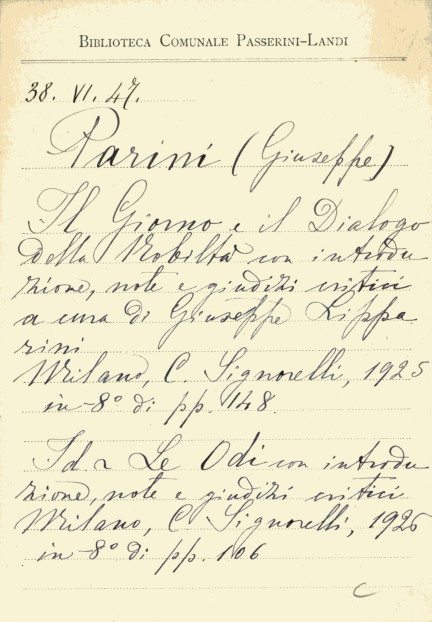 BIBLIOTECA COMUNALE PASSERINI-LANDI
38. VI. 47.
Parini (Giuseppe)
Il Giorno e il Dialogo
della Nobiltà con introdu
zione, note e giudizi critici
a cura di Giuseppe Lippa
rini
Milano, C. Signorelli, 1925
in-8º di pp. 148.
Id - Le Odi con introdu
zione, note e giudizi critici
Milano, C. Signorelli, 1925
in-8º di pp. 106
C